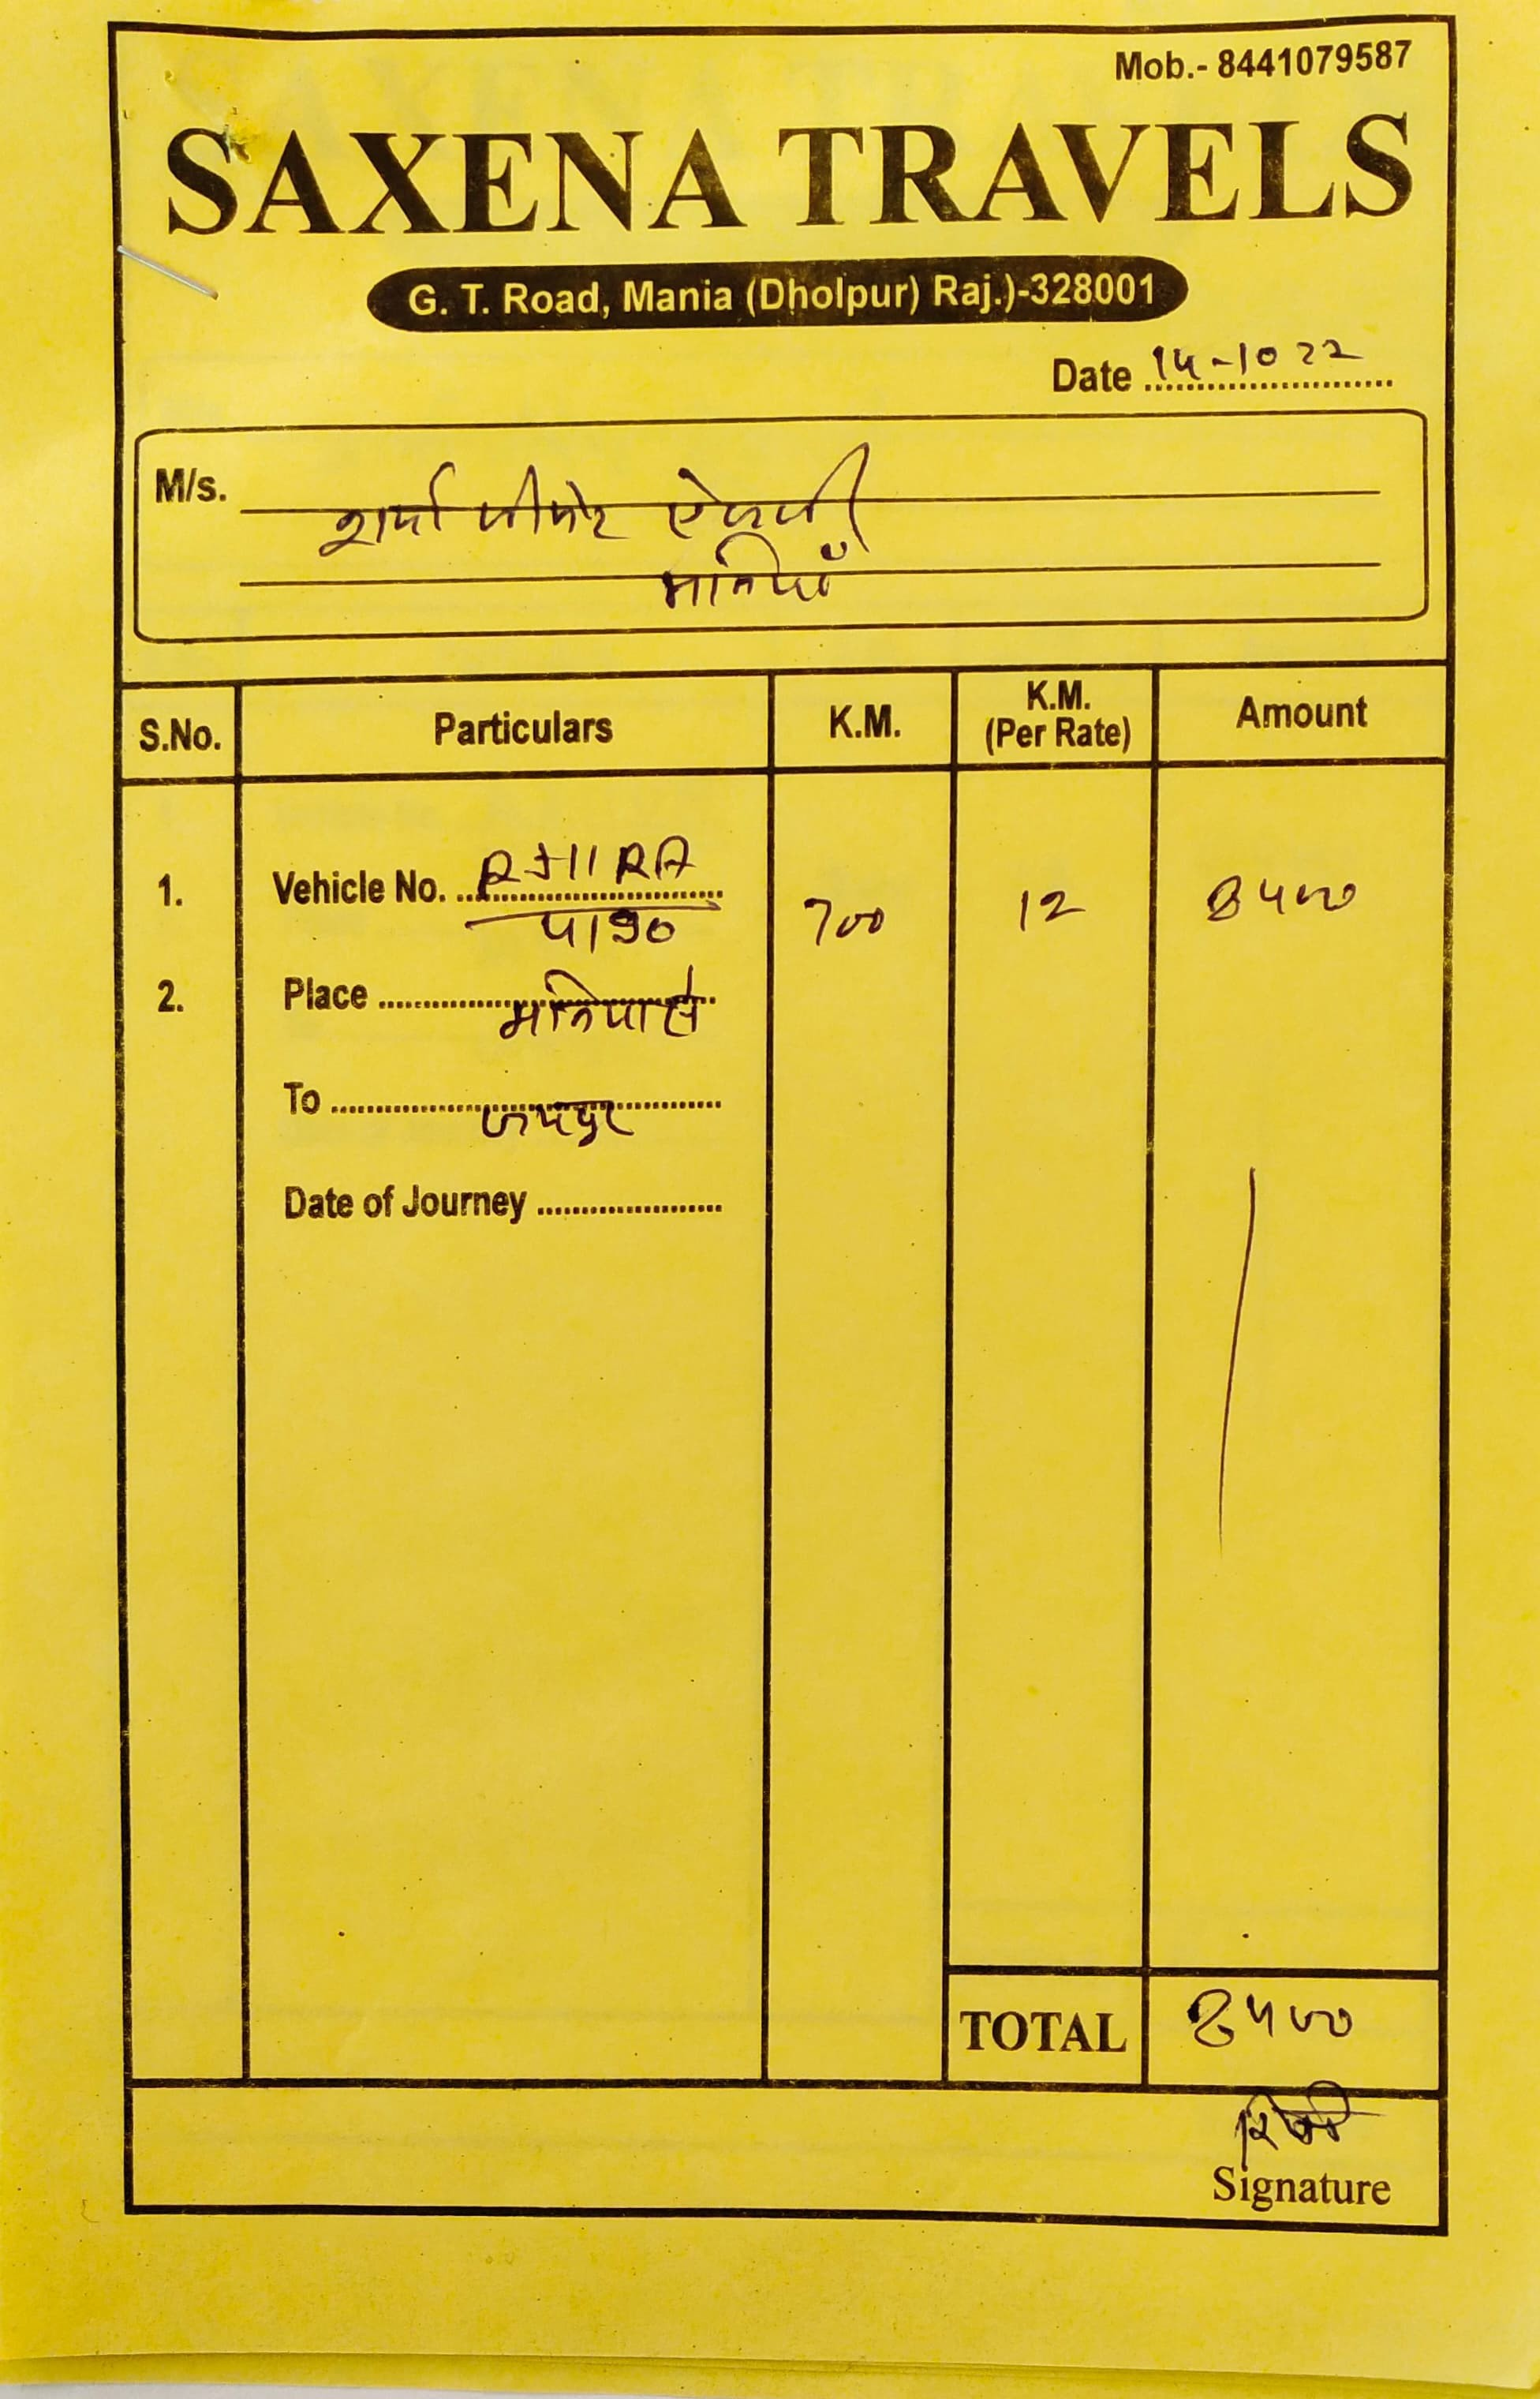 Mob.- 8441079587
SAXENA TRAVELS
G. T. Road, Mania (Dholpur) Raj.)-328001
Date 14-10 22
M/s.
शर्मा
मनियाँ
S.No. Particulars K.M. K.M. (Per Rate) Amount
1. Vehicle No. RJ11 RA 700 12 8400
2. Place मनिया से
To जयपुर
Date of Journey
TOTAL 8400
Signature